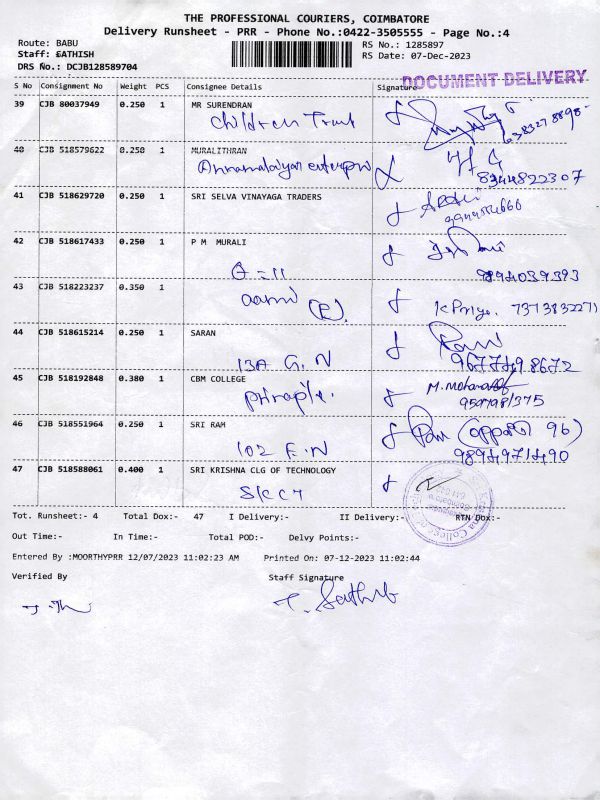 THE PROFESSIONAL COURIERS, COIMBATORE
Delivery Runsheet - PRR - Phone No.:0422-3505555 - Page No.:4
Route: BABU
RS No.: 1285897
Staff: SATHISH
RS Date: 07-Dec-2023
DRS No.: DCJB128589704
DOCUMENT DELIVERY
S No Consignment No Weight PCS Consignee Details Signature
39 CJB 80037949 0.250 1 MR SURENDRAN
Children Trust
40 CJB 518579622 0.250 1 MURALITHRAN
8344822307
41 CJB 518629720 0.250 1 SRI SELVA VINAYAGA TRADERS
42 CJB 518617433 0.250 1 P M MURALI
9894039393
43 CJB 518223237 0.350 1
K Priya. 7373832271
44 CJB 518615214 0.250 1 SARAN
13A G.N 9677498672
45 CJB 518192848 0.380 1 CBM COLLEGE
46 CJB 518551964 0.250 1 SRI RAM
102 F.N 9894971490
47 CJB 518588061 0.400 1 SRI KRISHNA CLG OF TECHNOLOGY
SKCT
Tot. Runsheet:- 4 Total Dox:- 47 I Delivery:- II Delivery:- RTN Dox:-
Out Time:- In Time:- Total POD:- Delvy Points:-
Entered By :MOORTHYPRR 12/07/2023 11:02:23 AM Printed On: 07-12-2023 11:02:44
Verified By Staff Signature
T. Sathish